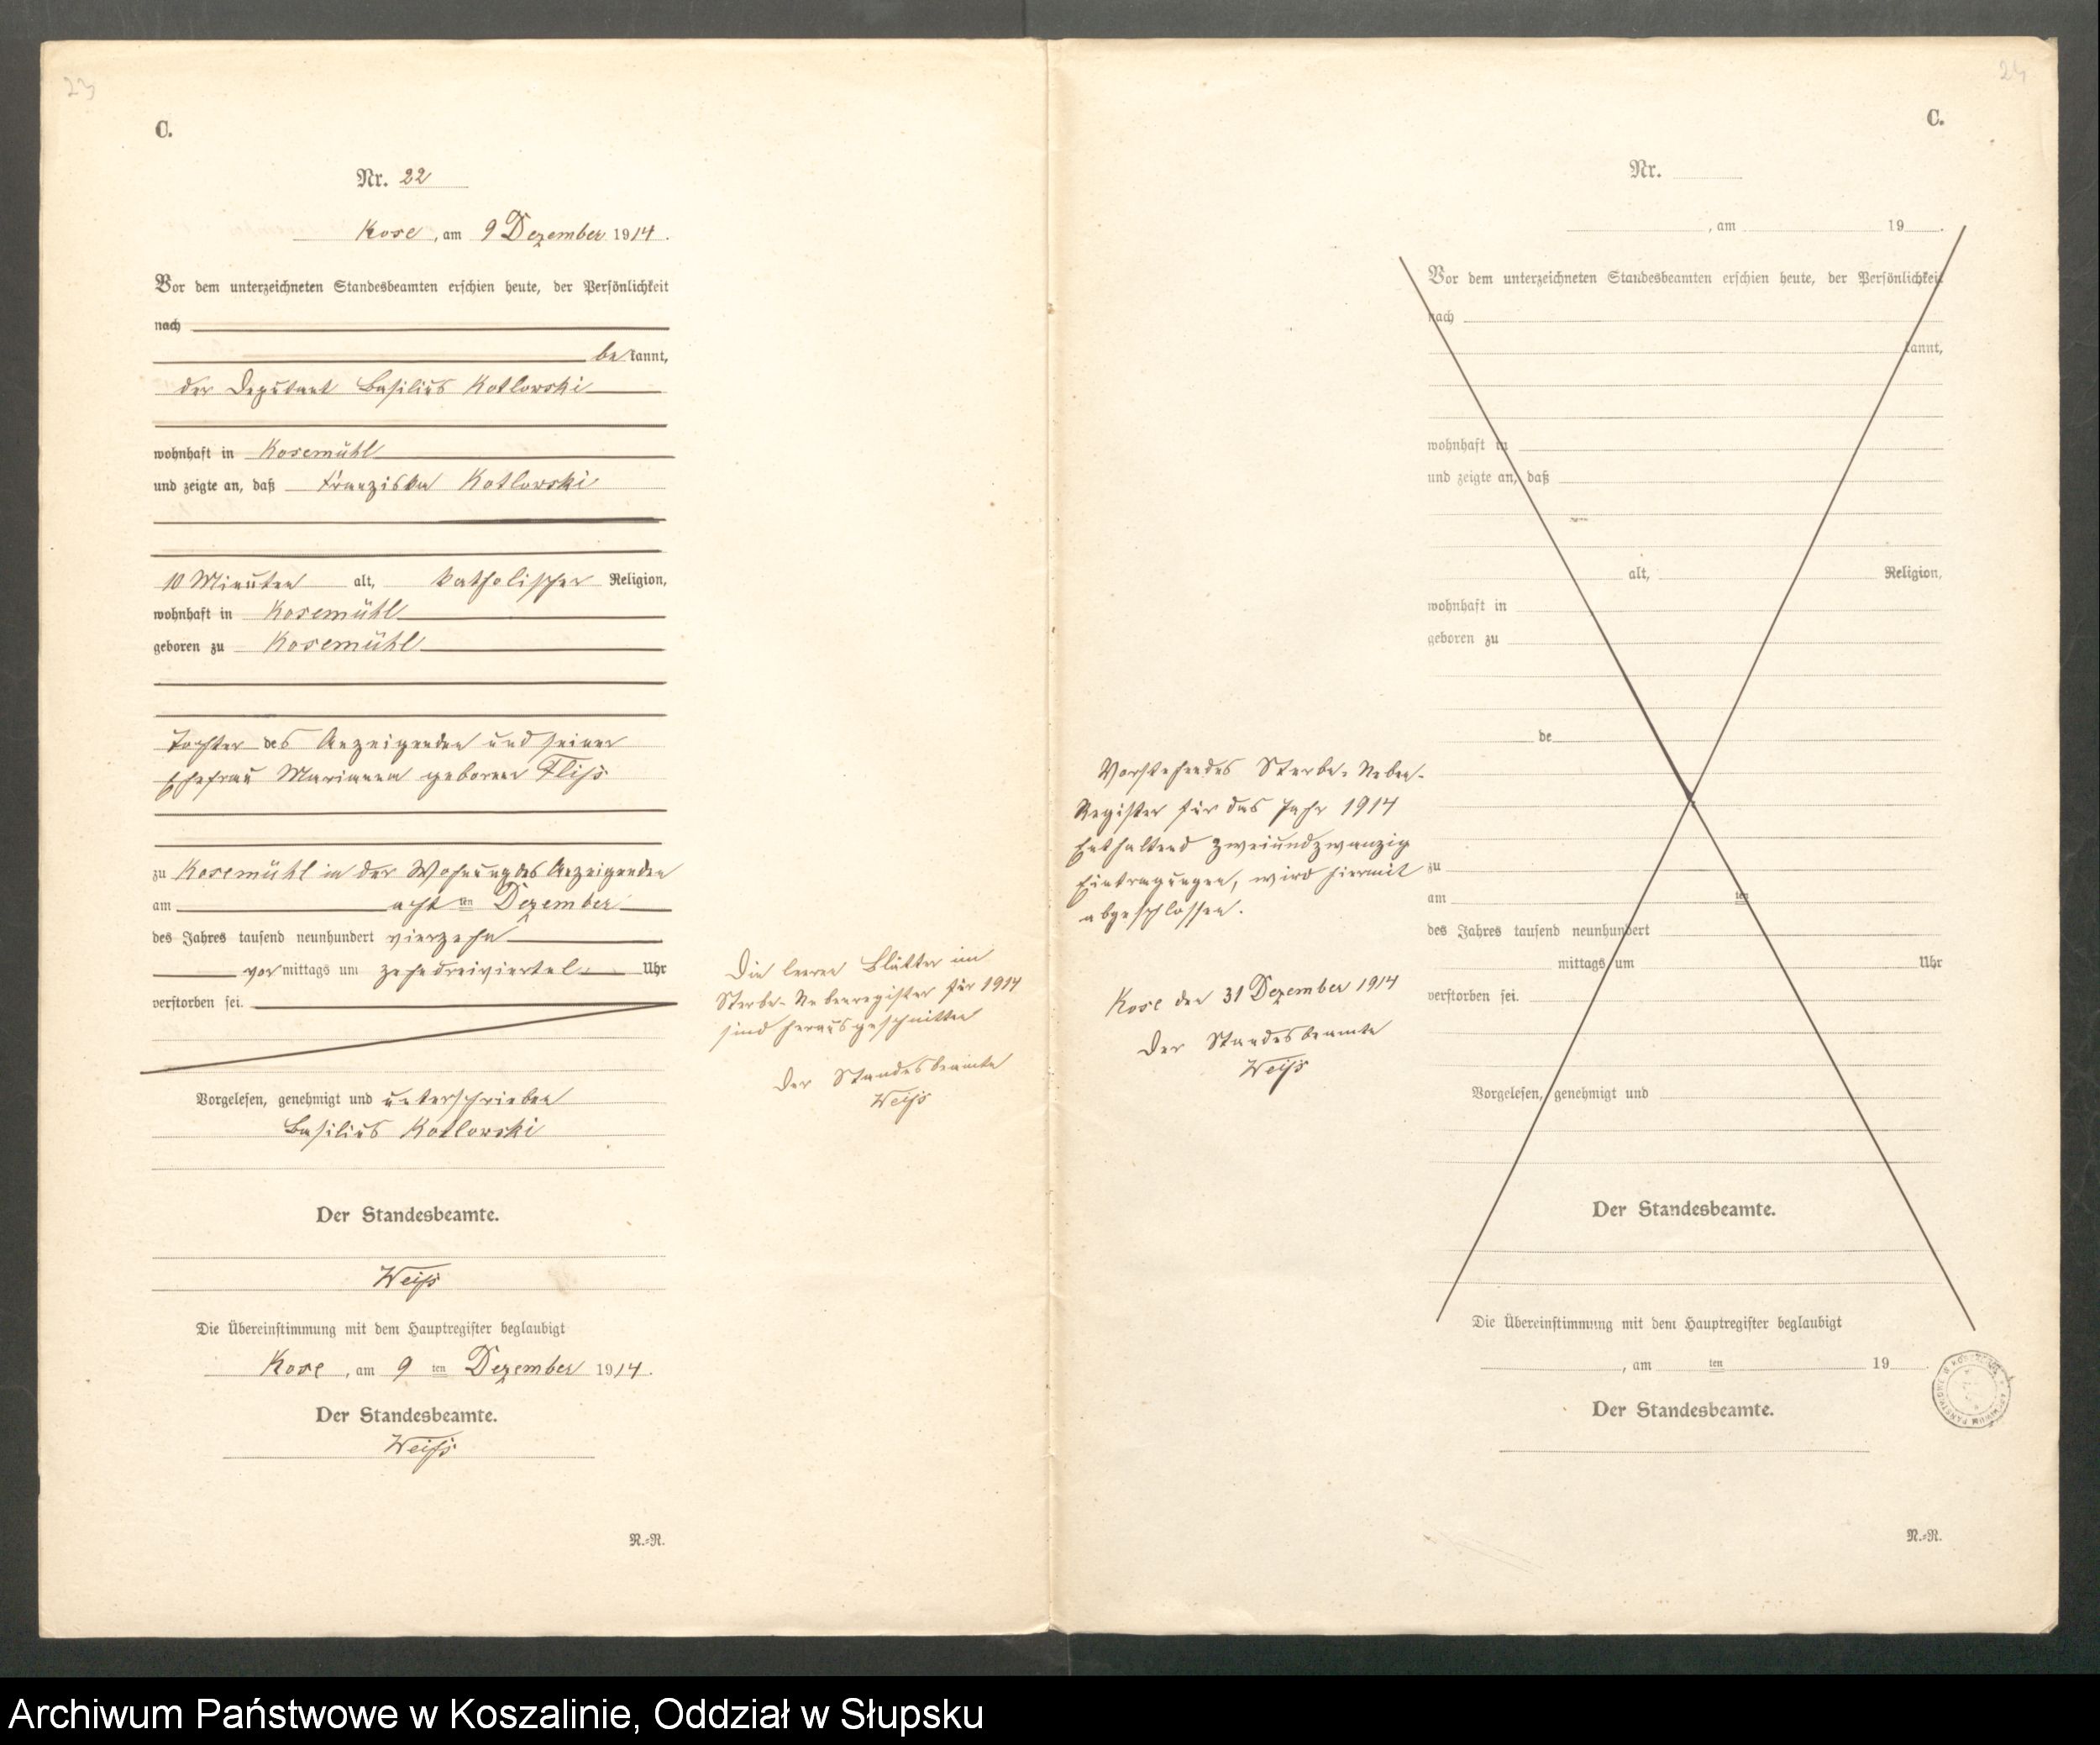 23
C.
Nr. 22
Kose, am 9 Dezember 1914.
Vor dem unterzeichneten Standesbeamten erschien heute, der Persönlichkeit
nach
bekannt,
der Deputant Basilius Kotlowski
wohnhaft in Kosemühl
und zeigte an, daß Franziska Kotlowski
10 Minuten alt, katholischer Religion,
wohnhaft in Kosemühl
geboren zu Kosemühl
Tochter des Anzeigenden und seiner
Ehefrau Marianna geborene Fliß
zu Kosemühl in der Wohnung des Anzeigenden
am acht ten Dezember
des Jahres tausend neunhundert vierzehn
vormittags um zehndreiviertel Uhr
verstorben sei.
Vorgelesen, genehmigt und unterschrieben
Basilius Kotlowski
Der Standesbeamte.
Weiß
Die Übereinstimmung mit dem Hauptregister beglaubigt
Kose, am 9 ten Dezember 1914.
Der Standesbeamte.
Weiß
N.=R.
Die leeren Blätter im
Sterbe-Nebenregister für 1914
sind herausgeschnitten
Der Standesbeamte
Weiß
24
C.
Vorstehendes Sterbe-Neben-
Register für das Jahr 1914
Enthaltend zweiundzwanzig
Eintragungen, wird hiermit
abgeschlossen.
Kose den 31 Dezember 1914
Der Standesbeamte
Weiß
Nr.
, am 19 .
Vor dem unterzeichneten Standesbeamten erschien heute, der Persönlichkeit
nach
kannt,
wohnhaft in
und zeigte an, daß
alt, Religion,
wohnhaft in
geboren zu
de
zu
am ten
des Jahres tausend neunhundert
mittags um Uhr
verstorben sei.
Vorgelesen, genehmigt und
Der Standesbeamte.
Die Übereinstimmung mit dem Hauptregister beglaubigt
, am ten 19 .
Der Standesbeamte.
N.=R.
Archiwum Państwowe w Koszalinie, Oddział w Słupsku